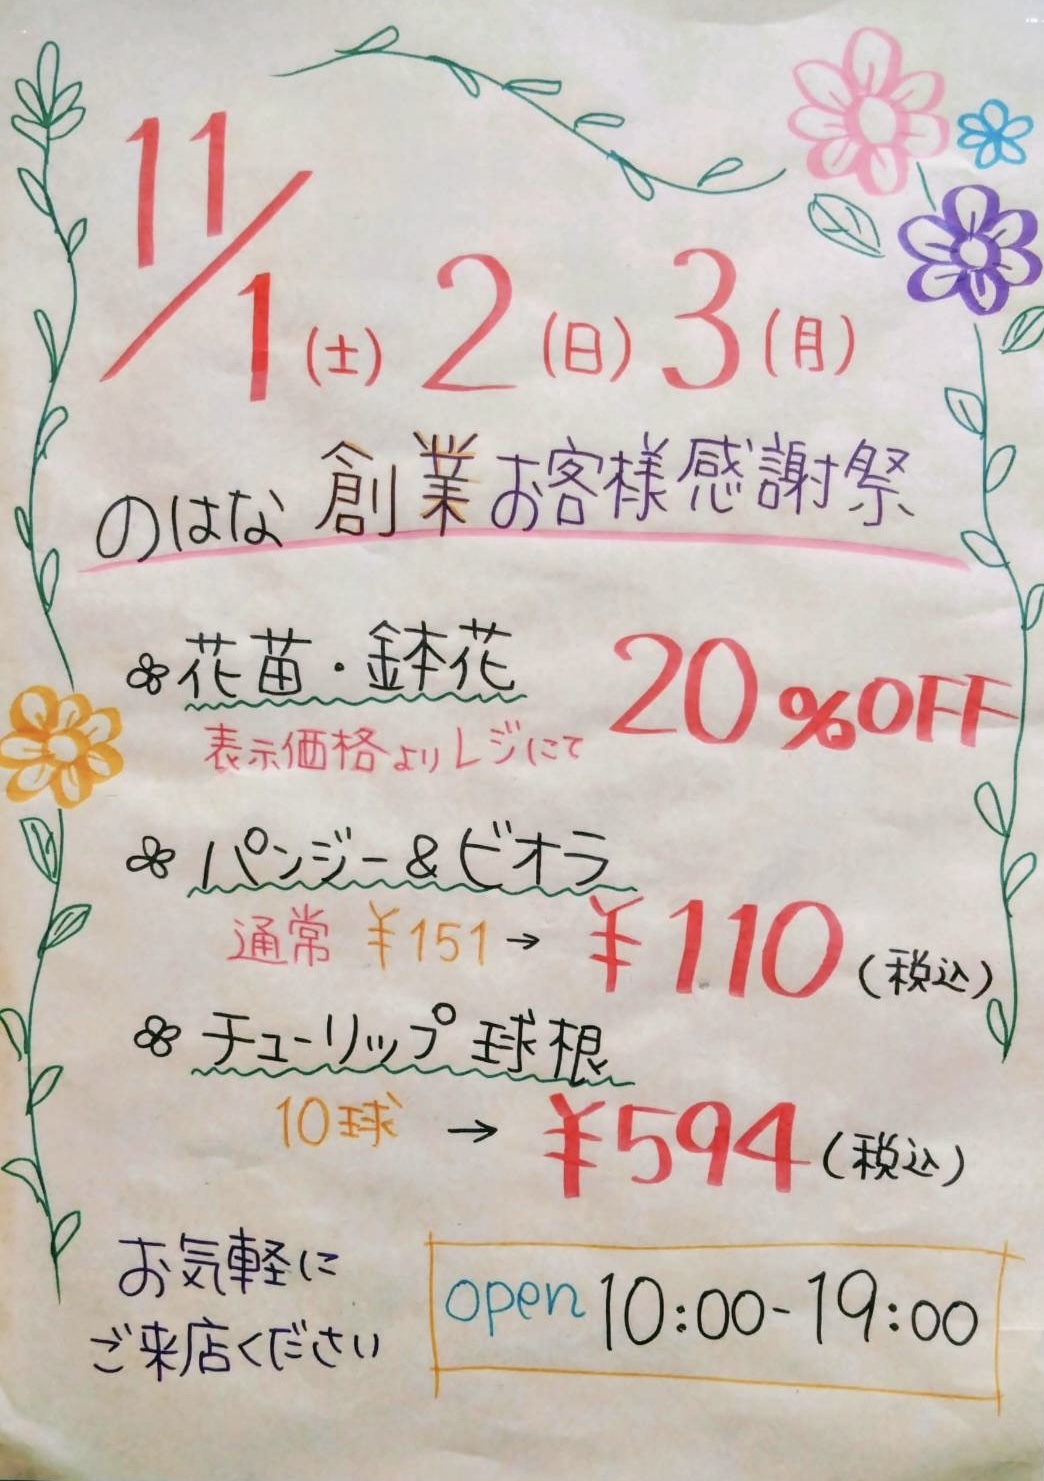 11/1(土) 2(日) 3(月)
のはな 創業お客様感謝祭
花苗・鉢花 20%OFF
表示価格よりレジにて
パンジー&ビオラ
通常 ¥151 → ¥110(税込)
チューリップ球根
10球 → ¥594(税込)
お気軽に
ご来店ください
open 10:00-19:00